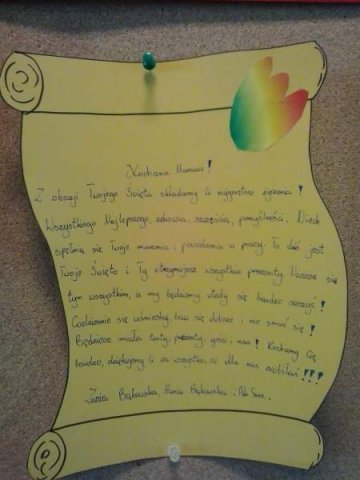 Kochana Mamusiu!
Z okazji Twojego Święta składamy Ci najgorętsze życzenia!
Wszystkiego Najlepszego, zdrowia, szczęścia, pomyślności. Niech
spełnią się Twoje marzenia i powodzenia w pracy. To dziś jest
Twoje Święto i Ty otrzymujesz wszystkie prezenty. Nacieszę się
tym wszystkim, a my będziemy wtedy się bardzo cieszyć!
Codziennie się uśmiechaj, baw się dobrze i nie smuć się!
Będziesz miała torty, prezenty, gości i nas! Kochamy Cię
bardzo, dziękujemy Ci za wszystko, co dla nas zrobiłaś!!!
Zuzia Bąbowska, Hania Bąbowska i